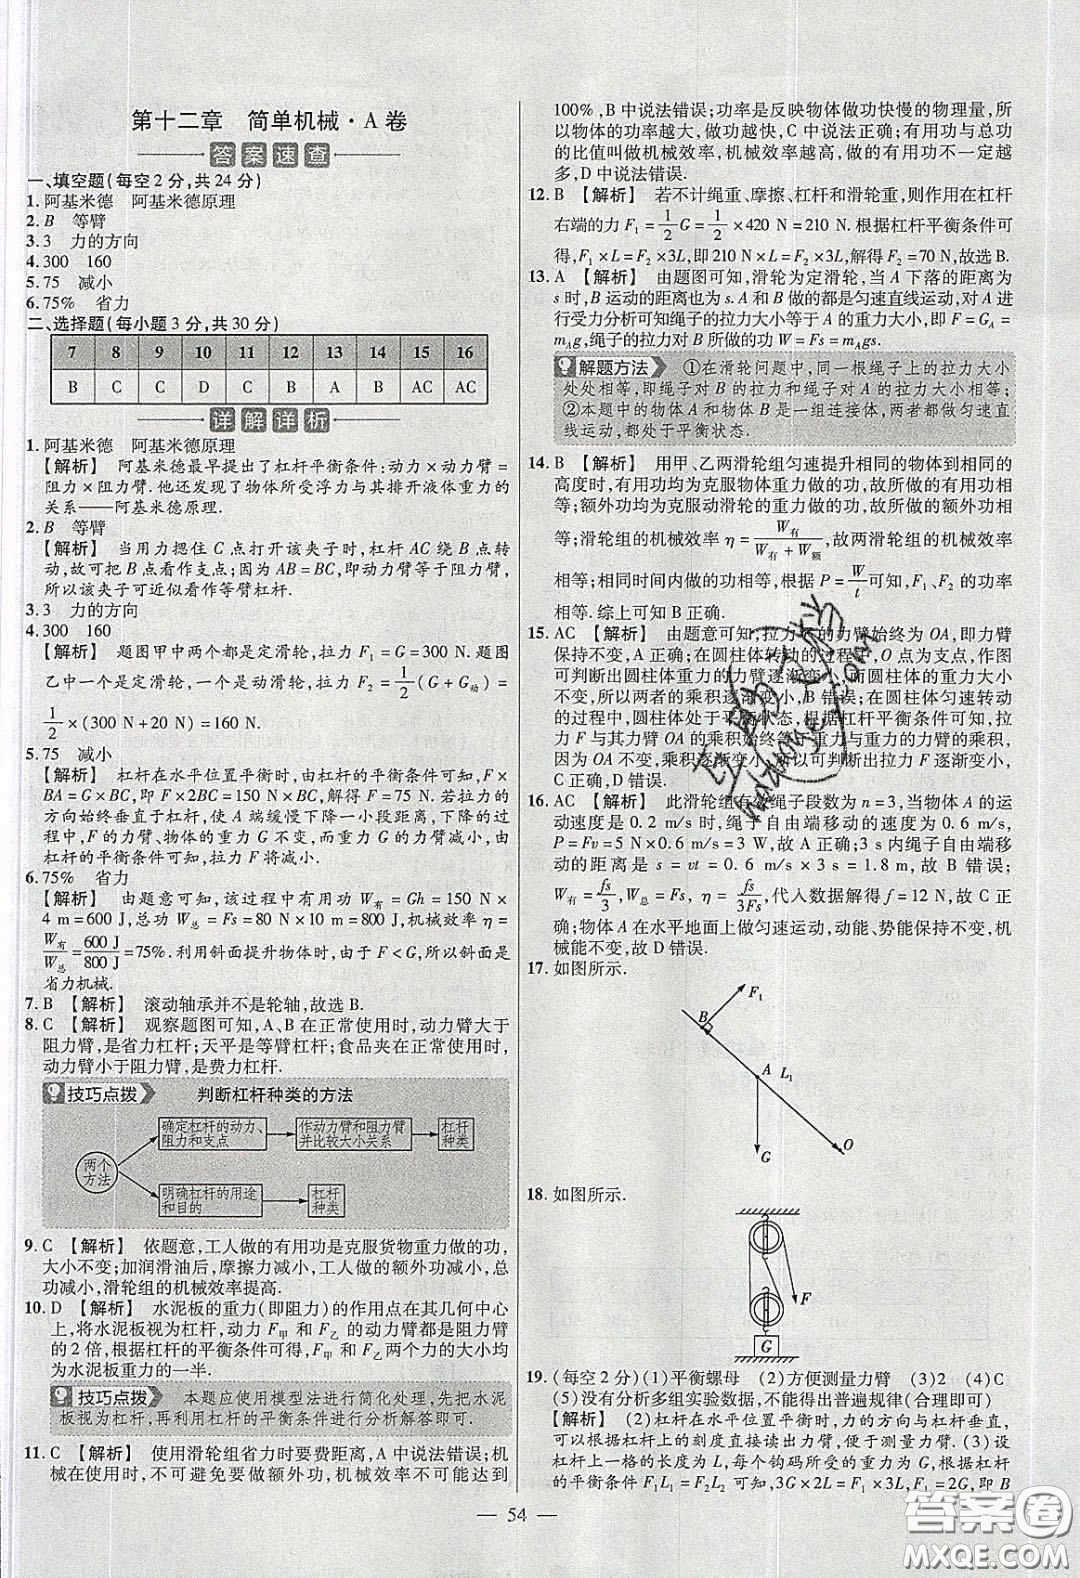 第十二章 简单机械·A卷
答案速查
一、填空题(每空2分,共24分)
1.阿基米德 阿基米德原理
2.B 等臂
3.3 力的方向
4.300 160
5.75 减小
6.75% 省力
二、选择题(每小题3分,共30分)
7 8 9 10 11 12 13 14 15 16
B C C D C B A B AC AC
详解详析
1.阿基米德 阿基米德原理
【解析】 阿基米德最早提出了杠杆平衡条件:动力×动力臂=
阻力×阻力臂.他还发现了物体所受浮力与其排开液体重力的
关系——阿基米德原理.
2.B 等臂
【解析】 当用力摁住C点打开该夹子时,杠杆AC绕B点转
动,故可把B点看作支点;因为AB=BC,即动力臂等于阻力臂,
所以该夹子可近似看作等臂杠杆.
3.3 力的方向
4.300 160
【解析】 题图甲中两个都是定滑轮,拉力F₁=G=300 N.题图
乙中一个是定滑轮,一个是动滑轮,拉力F₂=1/2(G+G动)=
1/2×(300 N+20 N)=160 N.
5.75 减小
【解析】 杠杆在水平位置平衡时,由杠杆的平衡条件可知,F×
BA=G×BC,即F×2BC=150 N×BC,解得F=75 N.若拉力的
方向始终垂直于杠杆,使A端缓慢下降一小段距离,下降的过
程中,F的力臂、物体的重力G不变,而重力G的力臂减小,由
杠杆的平衡条件可知,拉力F将减小.
6.75% 省力
【解析】 由题意可知,该过程中有用功W有=Gh=150 N×
4 m=600 J,总功W总=Fs=80 N×10 m=800 J,机械效率η=
W有/W总=600 J/800 J=75%.利用斜面提升物体时,由于F<G,所以斜面是
省力机械.
7.B 【解析】 滚动轴承并不是轮轴,故选B.
8.C 【解析】 观察题图可知,A、B在正常使用时,动力臂大于
阻力臂,是省力杠杆;天平是等臂杠杆;食品夹在正常使用时,
动力臂小于阻力臂,是费力杠杆.
技巧点拨 判断杠杆种类的方法
两个方法
确定杠杆的动力、阻力和支点
作动力臂和阻力臂并比较大小关系
杠杆种类
明确杠杆的用途和目的
杠杆种类
9.C 【解析】 依题意,工人做的有用功是克服货物重力做的功,
大小不变;加润滑油后,摩擦力减小,工人做的额外功减小,总功
减小,滑轮组的机械效率提高.
10.D 【解析】 水泥板的重力(即阻力)的作用点在其几何中心
上,将水泥板视为杠杆,动力F甲和F乙的动力臂都是阻力臂
的2倍,根据杠杆的平衡条件可得,F甲和F乙两个力的大小均
为水泥板重力的一半.
技巧点拨 本题应使用模型法进行简化处理,先把水泥
板视为杠杆,再利用杠杆的平衡条件进行分析解答即可.
11.C 【解析】 使用滑轮组省力时要费距离,A中说法错误;机
械在使用时,不可避免要做额外功,机械效率不可能达到
100%,B中说法错误;功率是反映物体做功快慢的物理量,所
以物体的功率越大,做功越快,C中说法正确;有用功与总功
的比值叫做机械效率,机械效率越高,有用功不一定越
多,D中说法错误.
12.B 【解析】 若不计绳重、摩擦、杠杆和滑轮重,则作用在杠杆
右端的力F₁=1/2G=1/2×420 N=210 N.根据杠杆平衡条件可
得,F₁×L=F₂×3L,即210 N×L=F₂×3L,解得F₂=70 N,故选B.
13.A 【解析】 由题图可知,滑轮为定滑轮,当A下落的距离为
s时,B运动的距离也为s.A和B做的都是匀速直线运动,对A
进行受力分析可知绳子的拉力大小等于A的重力大小,即F=G_A=
m_Ag,绳子的拉力对B所做的功W=Fs=m_Ags.
解题方法 ①在滑轮问题中,同一根绳子上的拉力大小
处处相等,即绳子对B的拉力和绳子对A的拉力大小相等;
②本题中的物体A和物体B是一组连接体,两者都做匀速直
线运动,都处于平衡状态.
14.B 【解析】 用甲、乙两滑轮组匀速提升相同的物体到相同的
高度时,有用功均为克服物体重力做的功,故所做的有用功相
等;额外功均为克服动滑轮的重力做的功,故所做的额外功相
等;滑轮组的机械效率η=W有/(W有+W额),故两滑轮组的机械效率
相等;相同时间内做的功相等,根据P=W/t可知,F甲、F乙的功率
相等.综上可知B正确.
15.AC 【解析】 由题意可知,拉力F的力臂始终为OA,即力臂
保持不变,A正确;在圆柱体转动的过程中,O点为支点,作图
可判断出圆柱体重力的力臂逐渐变小,而圆柱体的重力大小
不变,所以两者的乘积逐渐变小,B错误;在圆柱体匀速转动
的过程中,圆柱体处于平衡状态,根据杠杆平衡条件可知,拉
力F与其力臂OA的乘积始终等于重力与重力的力臂的乘积,
因为OA不变,乘积逐渐变小,所以可判断出拉力F逐渐变小,
C正确,D错误.
16.AC 【解析】 此滑轮组有效绳子段数为n=3,当物体A的运
动速度是0.2 m/s时,绳子自由端移动的速度为0.6 m/s,
P=Fv=5 N×0.6 m/s=3 W,A正确;3 s内绳子自由端移
动的距离是s=vt=0.6 m/s×3 s=1.8 m,故B错误;
W有=fs/3,W总=Fs,η=fs/3Fs,代入数据解得f=12 N,故C正
确;物体A在水平地面上做匀速运动,动能、势能保持不变,机
械能不变,故D错误.
17.如图所示.
F₁
B
A L₁
O
G
18.如图所示.
F
G
19.(每空2分)(1)平衡螺母 (2)方便测量力臂 (3)2 (4)C
(5)没有分析多组实验数据,不能得出普遍规律(合理即可)
【解析】 (2)杠杆在水平位置平衡时,力的方向与杠杆垂直,
可以从杠杆上的刻度直接读出力臂,便于测量力臂.(3)设
杠杆上一格的长度为L,每个钩码所受的重力为G,根据杠杆
的平衡条件F₁L₁=F₂L₂可知,3G×2L=F×3L,F=2G,即B
— 54 —
答案圈
MXQE.COM